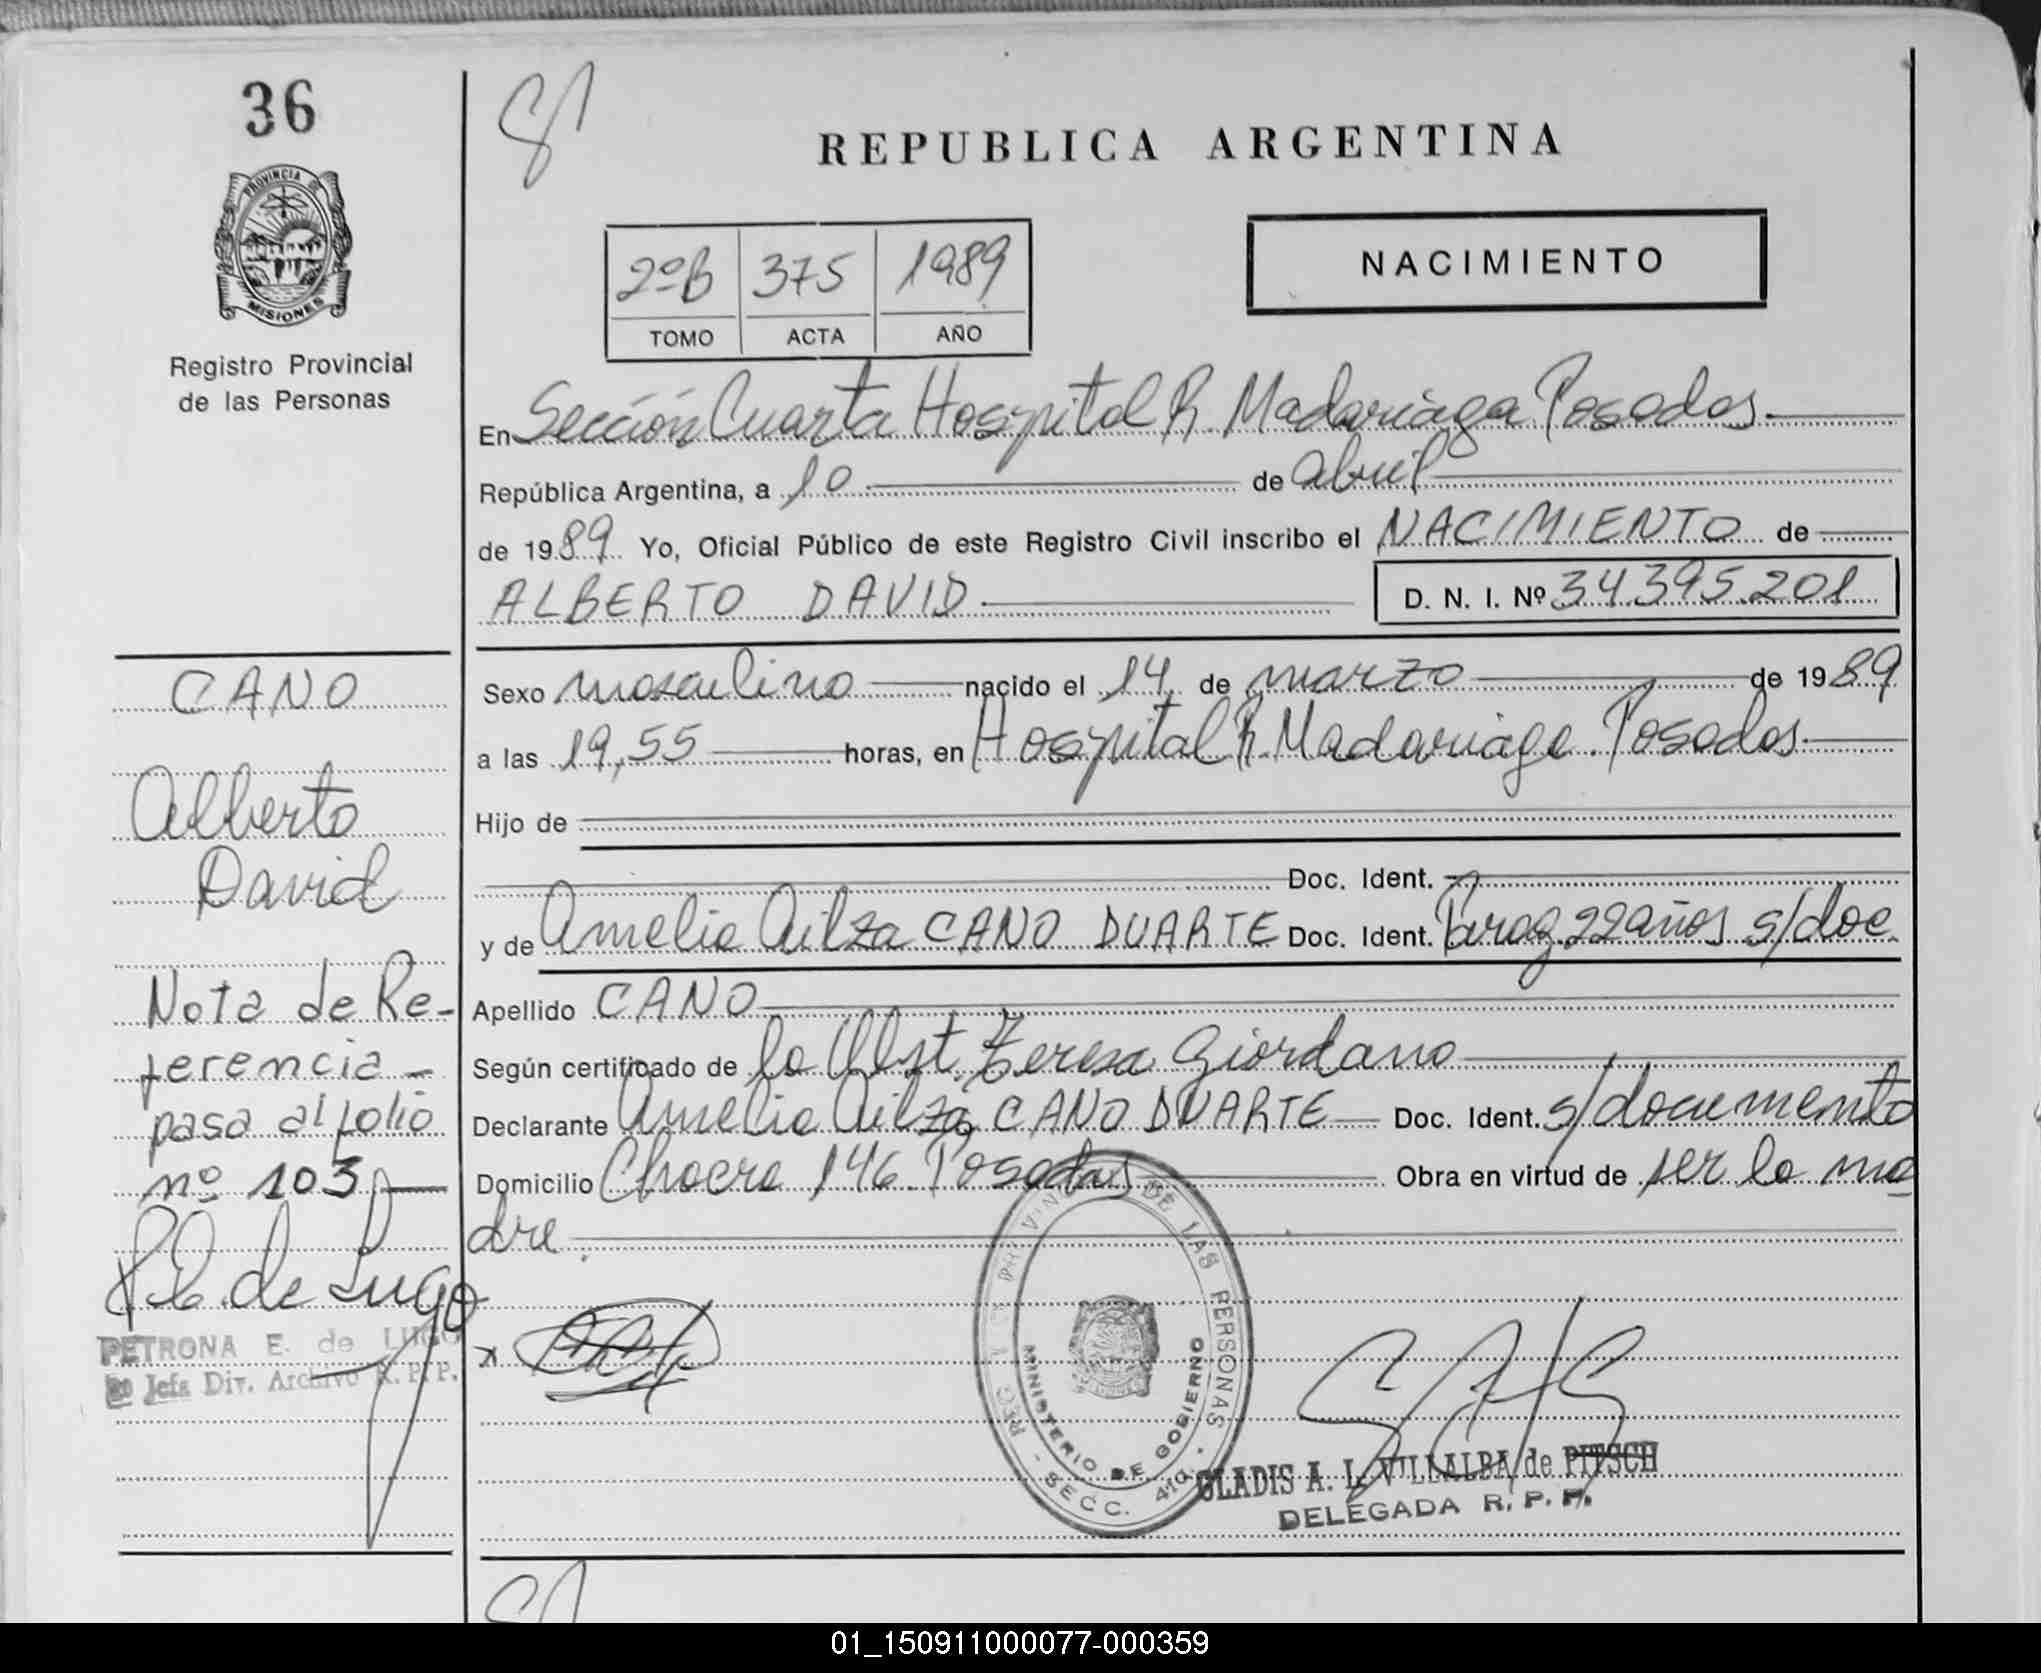 36
REPUBLICA ARGENTINA
PROVINCIA DE
MISIONES
Registro Provincial
de las Personas
2º B 375 1989
TOMO ACTA AÑO
NACIMIENTO
En Sección Cuarta Hospital R. Madariaga Posadas.
República Argentina, a 10 de abril
de 1989 Yo, Oficial Público de este Registro Civil inscribo el NACIMIENTO de
ALBERTO DAVID
D. N. I. Nº 34.395.201
Sexo masculino nacido el 14 de marzo de 1989
a las 19,55 horas, en Hospital R. Madariaga. Posadas.
Hijo de
Doc. Ident.
y de Amelia Ailza CANO DUARTE Doc. Ident. Parag. 22 años s/doc.
Apellido CANO
Según certificado de la Obst. Teresa Giordano
Declarante Amelia Ailza CANO DUARTE Doc. Ident. s/documento
Domicilio Chacra 146. Posadas Obra en virtud de ser la ma
dre.
CANO
Alberto
David
Nota de Re-
ferencia -
pasa al folio
nº 103
P. E. de Lugo
PETRONA E. de LUGO
Jefa Div. Archivo R. P. P.
DE LAS PERSONAS - SECC. 4ta.
MINISTERIO DE GOBIERNO
GLADIS A. L. VILLALBA de PITSCH
DELEGADA R. P. P.
01_150911000077-000359